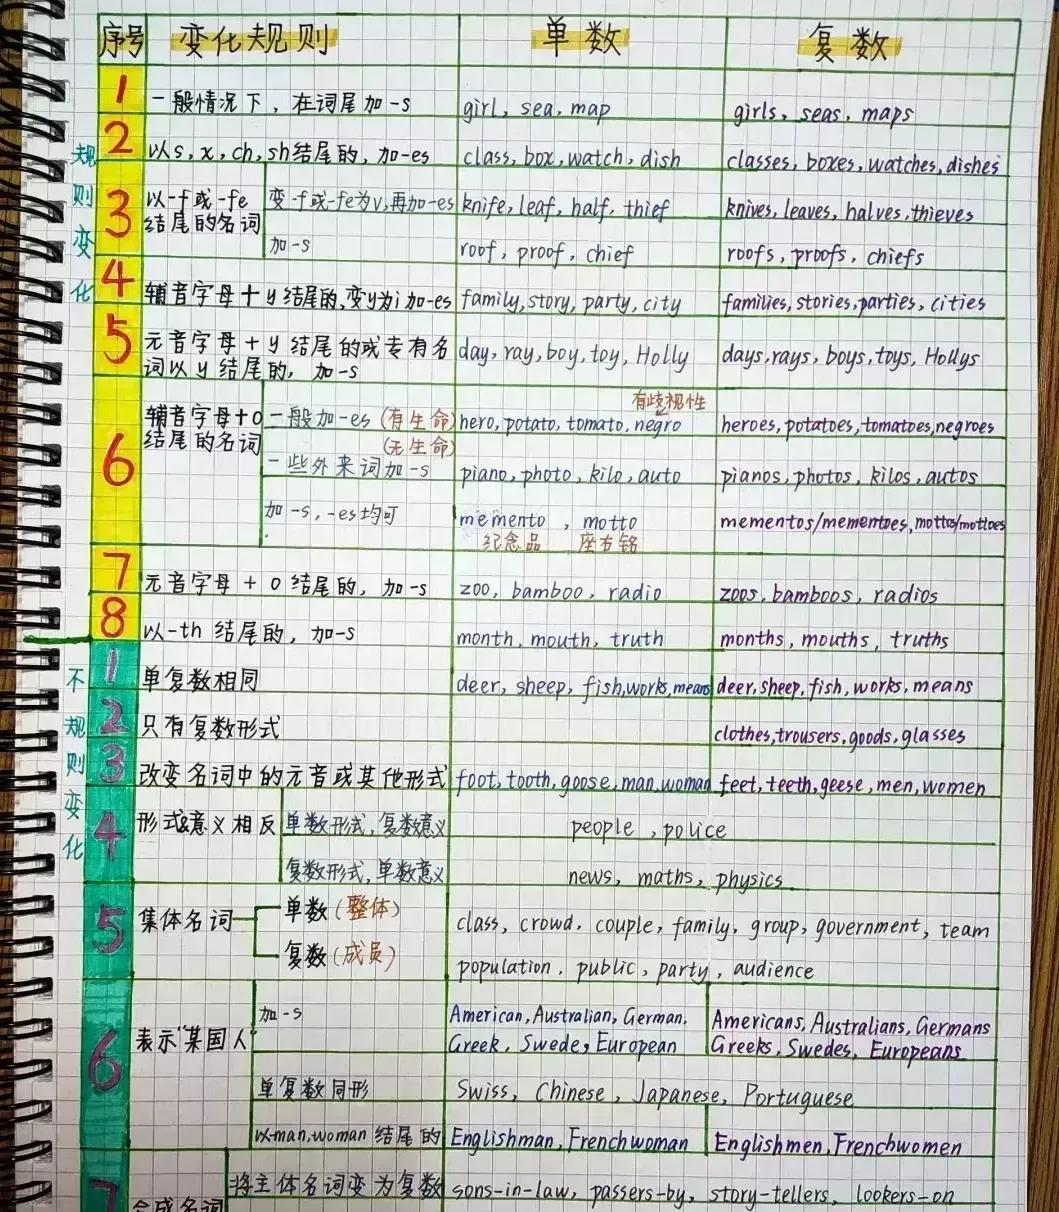 序号 变化规则 单数 复数
规则变化
1 一般情况下，在词尾加-s girl, sea, map girls, seas, maps
2 以s, x, ch, sh结尾的，加-es class, box, watch, dish classes, boxes, watches, dishes
3 以-f或-fe结尾的名词 变-f或-fe为v,再加-es knife, leaf, half, thief knives, leaves, halves, thieves
加-s roof, proof, chief roofs, proofs, chiefs
4 辅音字母+y结尾的,变y为i加-es family, story, party, city families, stories, parties, cities
5 元音字母+y结尾的或专有名词以y结尾的，加-s day, ray, boy, toy, Holly days, rays, boys, toys, Hollys
有歧视性
6 辅音字母+o结尾的名词 一般加-es (有生命) hero, potato, tomato, negro heroes, potatoes, tomatoes, negroes
(无生命)
一些外来词加-s piano, photo, kilo, auto pianos, photos, kilos, autos
加-s, -es均可 memento, motto mementos/mementoes, mottos/mottoes
纪念品 座右铭
7 元音字母+o结尾的，加-s zoo, bamboo, radio zoos, bamboos, radios
8 以-th结尾的，加-s month, mouth, truth months, mouths, truths
不规则变化
1 单复数相同 deer, sheep, fish, works, means deer, sheep, fish, works, means
2 只有复数形式 clothes, trousers, goods, glasses
3 改变名词中的元音或其他形式 foot, tooth, goose, man, woman feet, teeth, geese, men, women
4 形式&意义相反 单数形式,复数意义 people, police
复数形式,单数意义 news, maths, physics
5 集体名词 单数(整体) class, crowd, couple, family, group, government, team
复数(成员) population, public, party, audience
6 表示"某国人" 加-s American, Australian, German, Americans, Australians, Germans
Greek, Swede, European Greeks, Swedes, Europeans
单复数同形 Swiss, Chinese, Japanese, Portuguese
以man,woman结尾的 Englishman, Frenchwoman Englishmen, Frenchwomen
7 合成名词 将主体名词变为复数 sons-in-law, passers-by, story-tellers, lookers-on